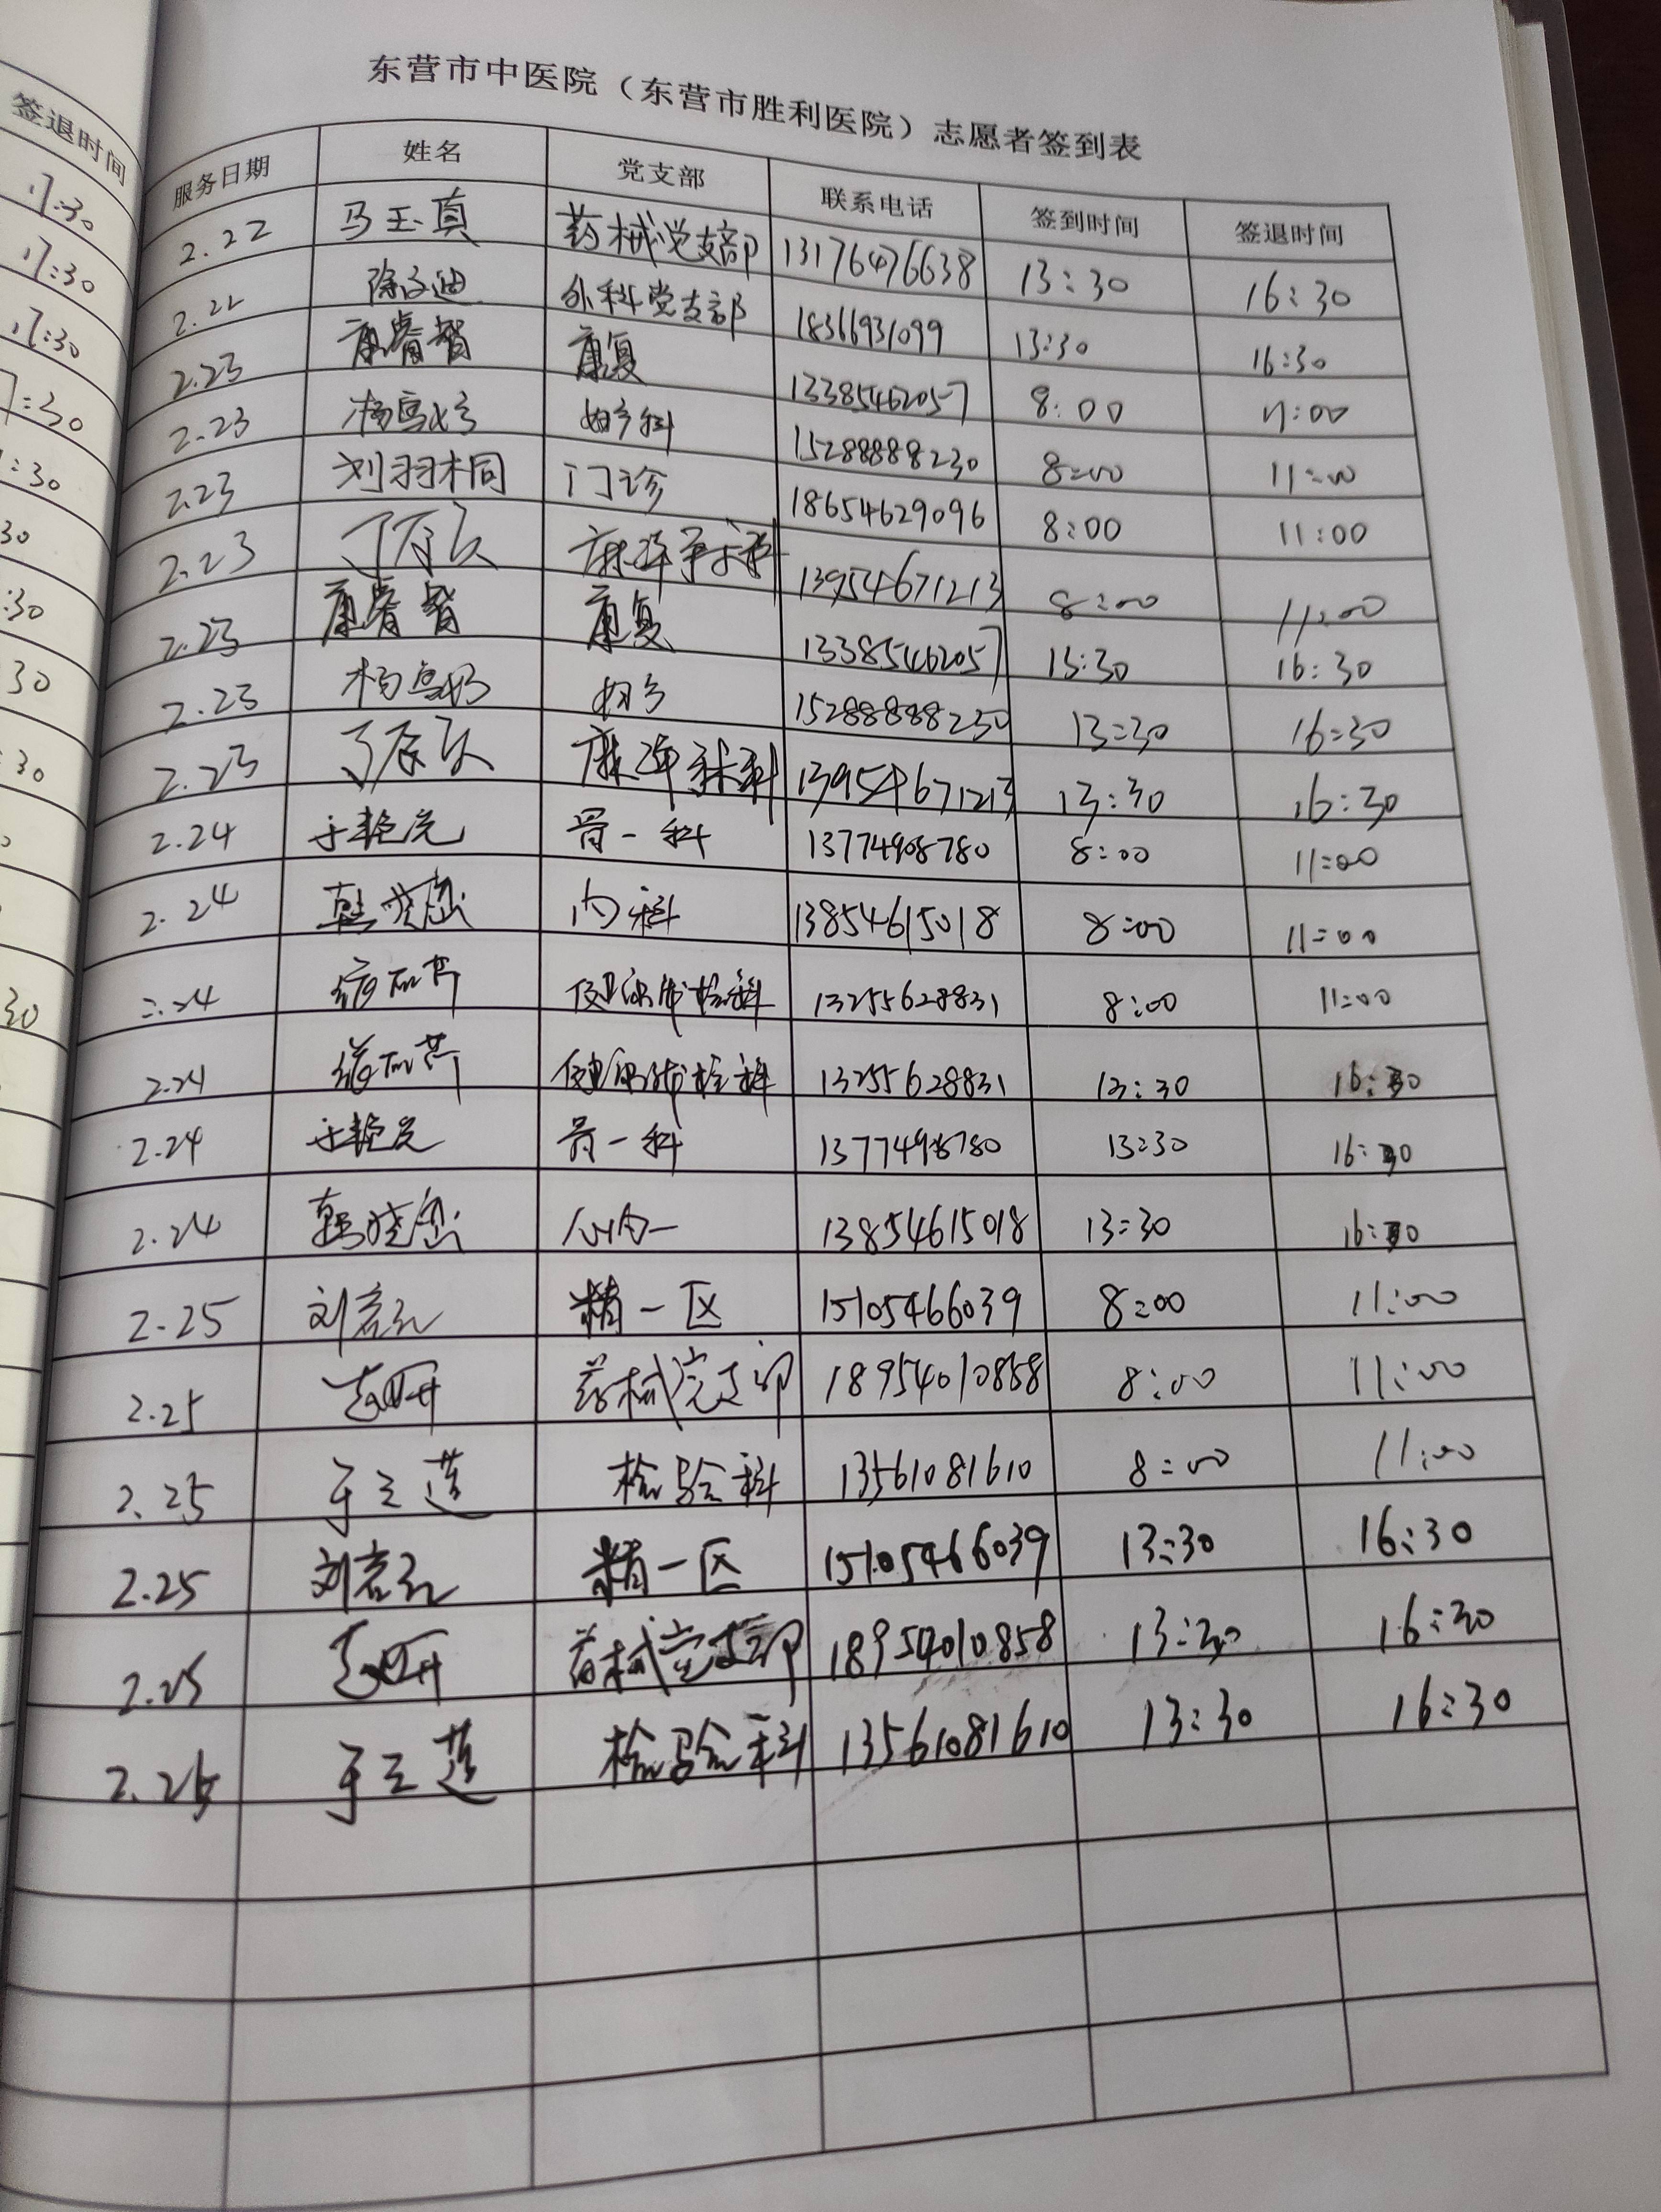 东营市中医院（东营市胜利医院）志愿者签到表
签退时间
17:30
17:30
17:30
7:30
:30
30
:30
30
:30
30
服务日期 姓名 党支部 联系电话 签到时间 签退时间
2.22 马玉真 药械党支部 13176476638 13:30 16:30
2.22 徐文迪 外科党支部 18366931099 13:30 16:30
2.23 康睿智 康复 13385462057 8:00 11:00
2.23 妇产科 15288888230 8:00 11:00
2.23 刘羽桐 门诊 18654629096 8:00 11:00
2.23 麻醉手术科 13954671213 8:00 11:00
2.23 康睿智 康复 13385462057 13:30 16:30
2.23 妇产 15288888230 13:30 16:30
2.23 麻醉手术科 13954671213 13:30 16:30
2.24 于艳亮 骨一科 13774908780 8:00 11:00
2.24 韩晓 内科 13854615018 8:00 11:00
2.24 健康体检科 13255628831 8:00 11:00
2.24 健康体检科 13255628831 13:30 16:30
2.24 于艳亮 骨一科 13774908780 13:30 16:30
2.24 韩晓 心内一 13854615018 13:30 16:30
2.25 刘 精一区 15105466039 8:00 11:00
2.25 药械党支部 18954010858 8:00 11:00
2.25 于 莲 检验科 13561081610 8:00 11:00
2.25 刘 精一区 15105466039 13:30 16:30
2.25 药械党支部 18954010858 13:30 16:30
2.25 于 莲 检验科 13561081610 13:30 16:30